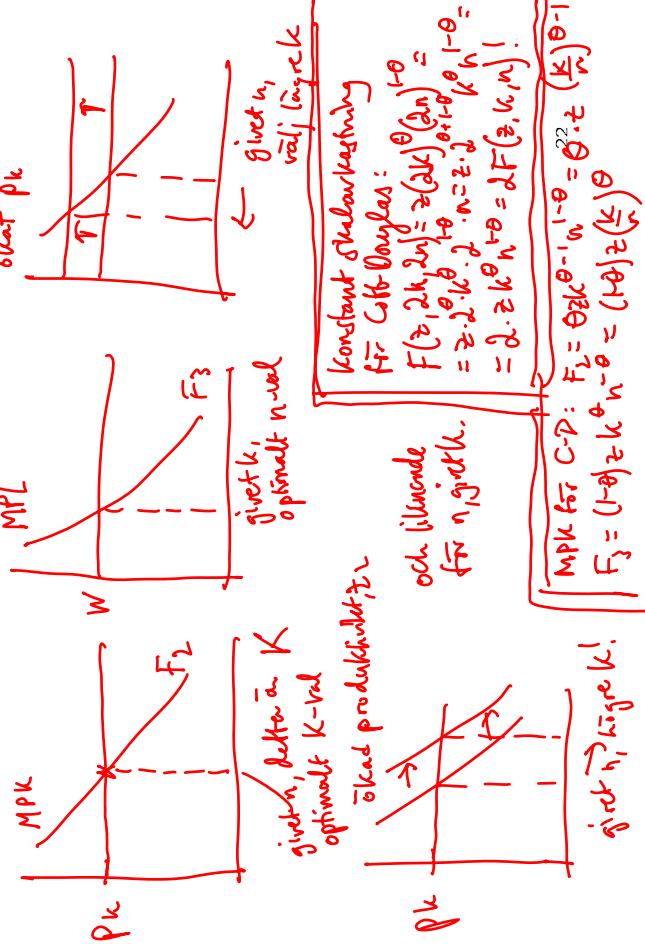 MPK
Pk
F2
K
givet n, detta är
optimalt K-val
MPL
W
F3
givet k,
optimalt n-val
ökat Pk
givet n,
välj lägre k
ökad produktivitet, z
Pk
givet n, högre k!
och liknande
för n, givet k.
Konstant skalavkastning
för Cobb-Douglas:
F(z, 2k, 2n) = z(2k)^θ (2n)^1-θ =
= z·2^θ·k^θ·2^1-θ·n^1-θ = z·2^θ+1-θ k^θ n^1-θ =
= 2·z k^θ n^1-θ = 2F(z, k, n)!
MPK för C-D: F2 = θzk^θ-1 n^1-θ = θ·z (k/n)^θ-1
F3 = (1-θ)zk^θ n^-θ = (1-θ)z(k/n)^θ
22